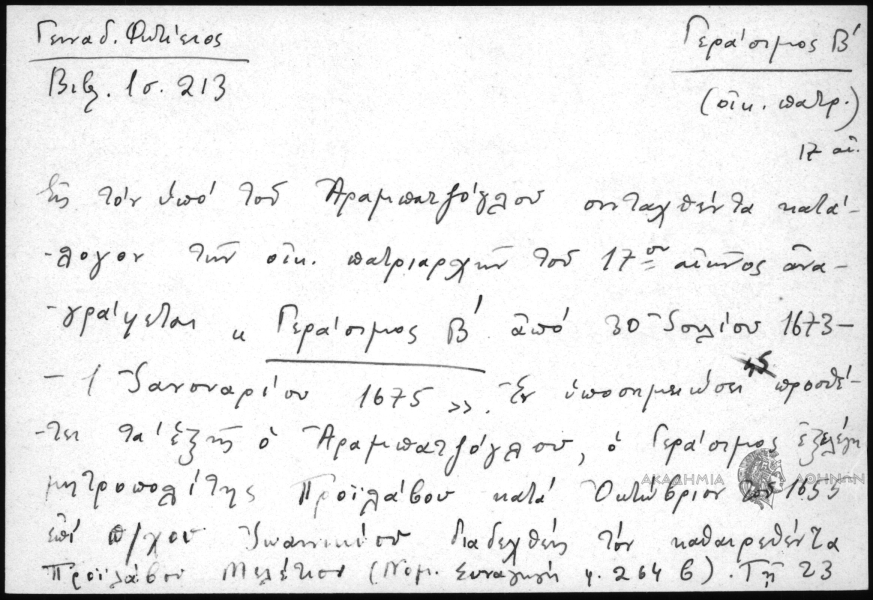 Γενναδ. Φωτίειος
Βιβλ. 1 σ. 213
Γεράσιμος Β΄
(οἰκ. πατρ.)
17 αἰ.
Εἰς τόν ὑπό τοῦ Ἀραμπατζόγλου συνταχθέντα κατά-
-λογον τῶν οἰκ. πατριαρχῶν τοῦ 17ου αἰῶνος ἀνα-
-γράφεται « Γεράσιμος Β΄ ἀπό 30 Ἰουλίου 1673-
- 1 Ἰανουαρίου 1675 ». Ἐν ὑποσημειώσει προσθέ-
-τει τά ἑξῆς ὁ Ἀραμπατζόγλου, ὁ Γεράσιμος ἐξελέγη
μητροπολίτης Προϊλάβου κατά Ὀκτώβριον τοῦ 1655
ἐπί π/ρχου Ἰωαννικίου διαδεχθείς τόν καθαιρεθέντα
Προϊλάβου Μελέτιον (Νομ. Συναγωγή φ. 264 β). Τῇ 23
ΑΚΑΔΗΜΙΑ ΑΘΗΝΩΝ